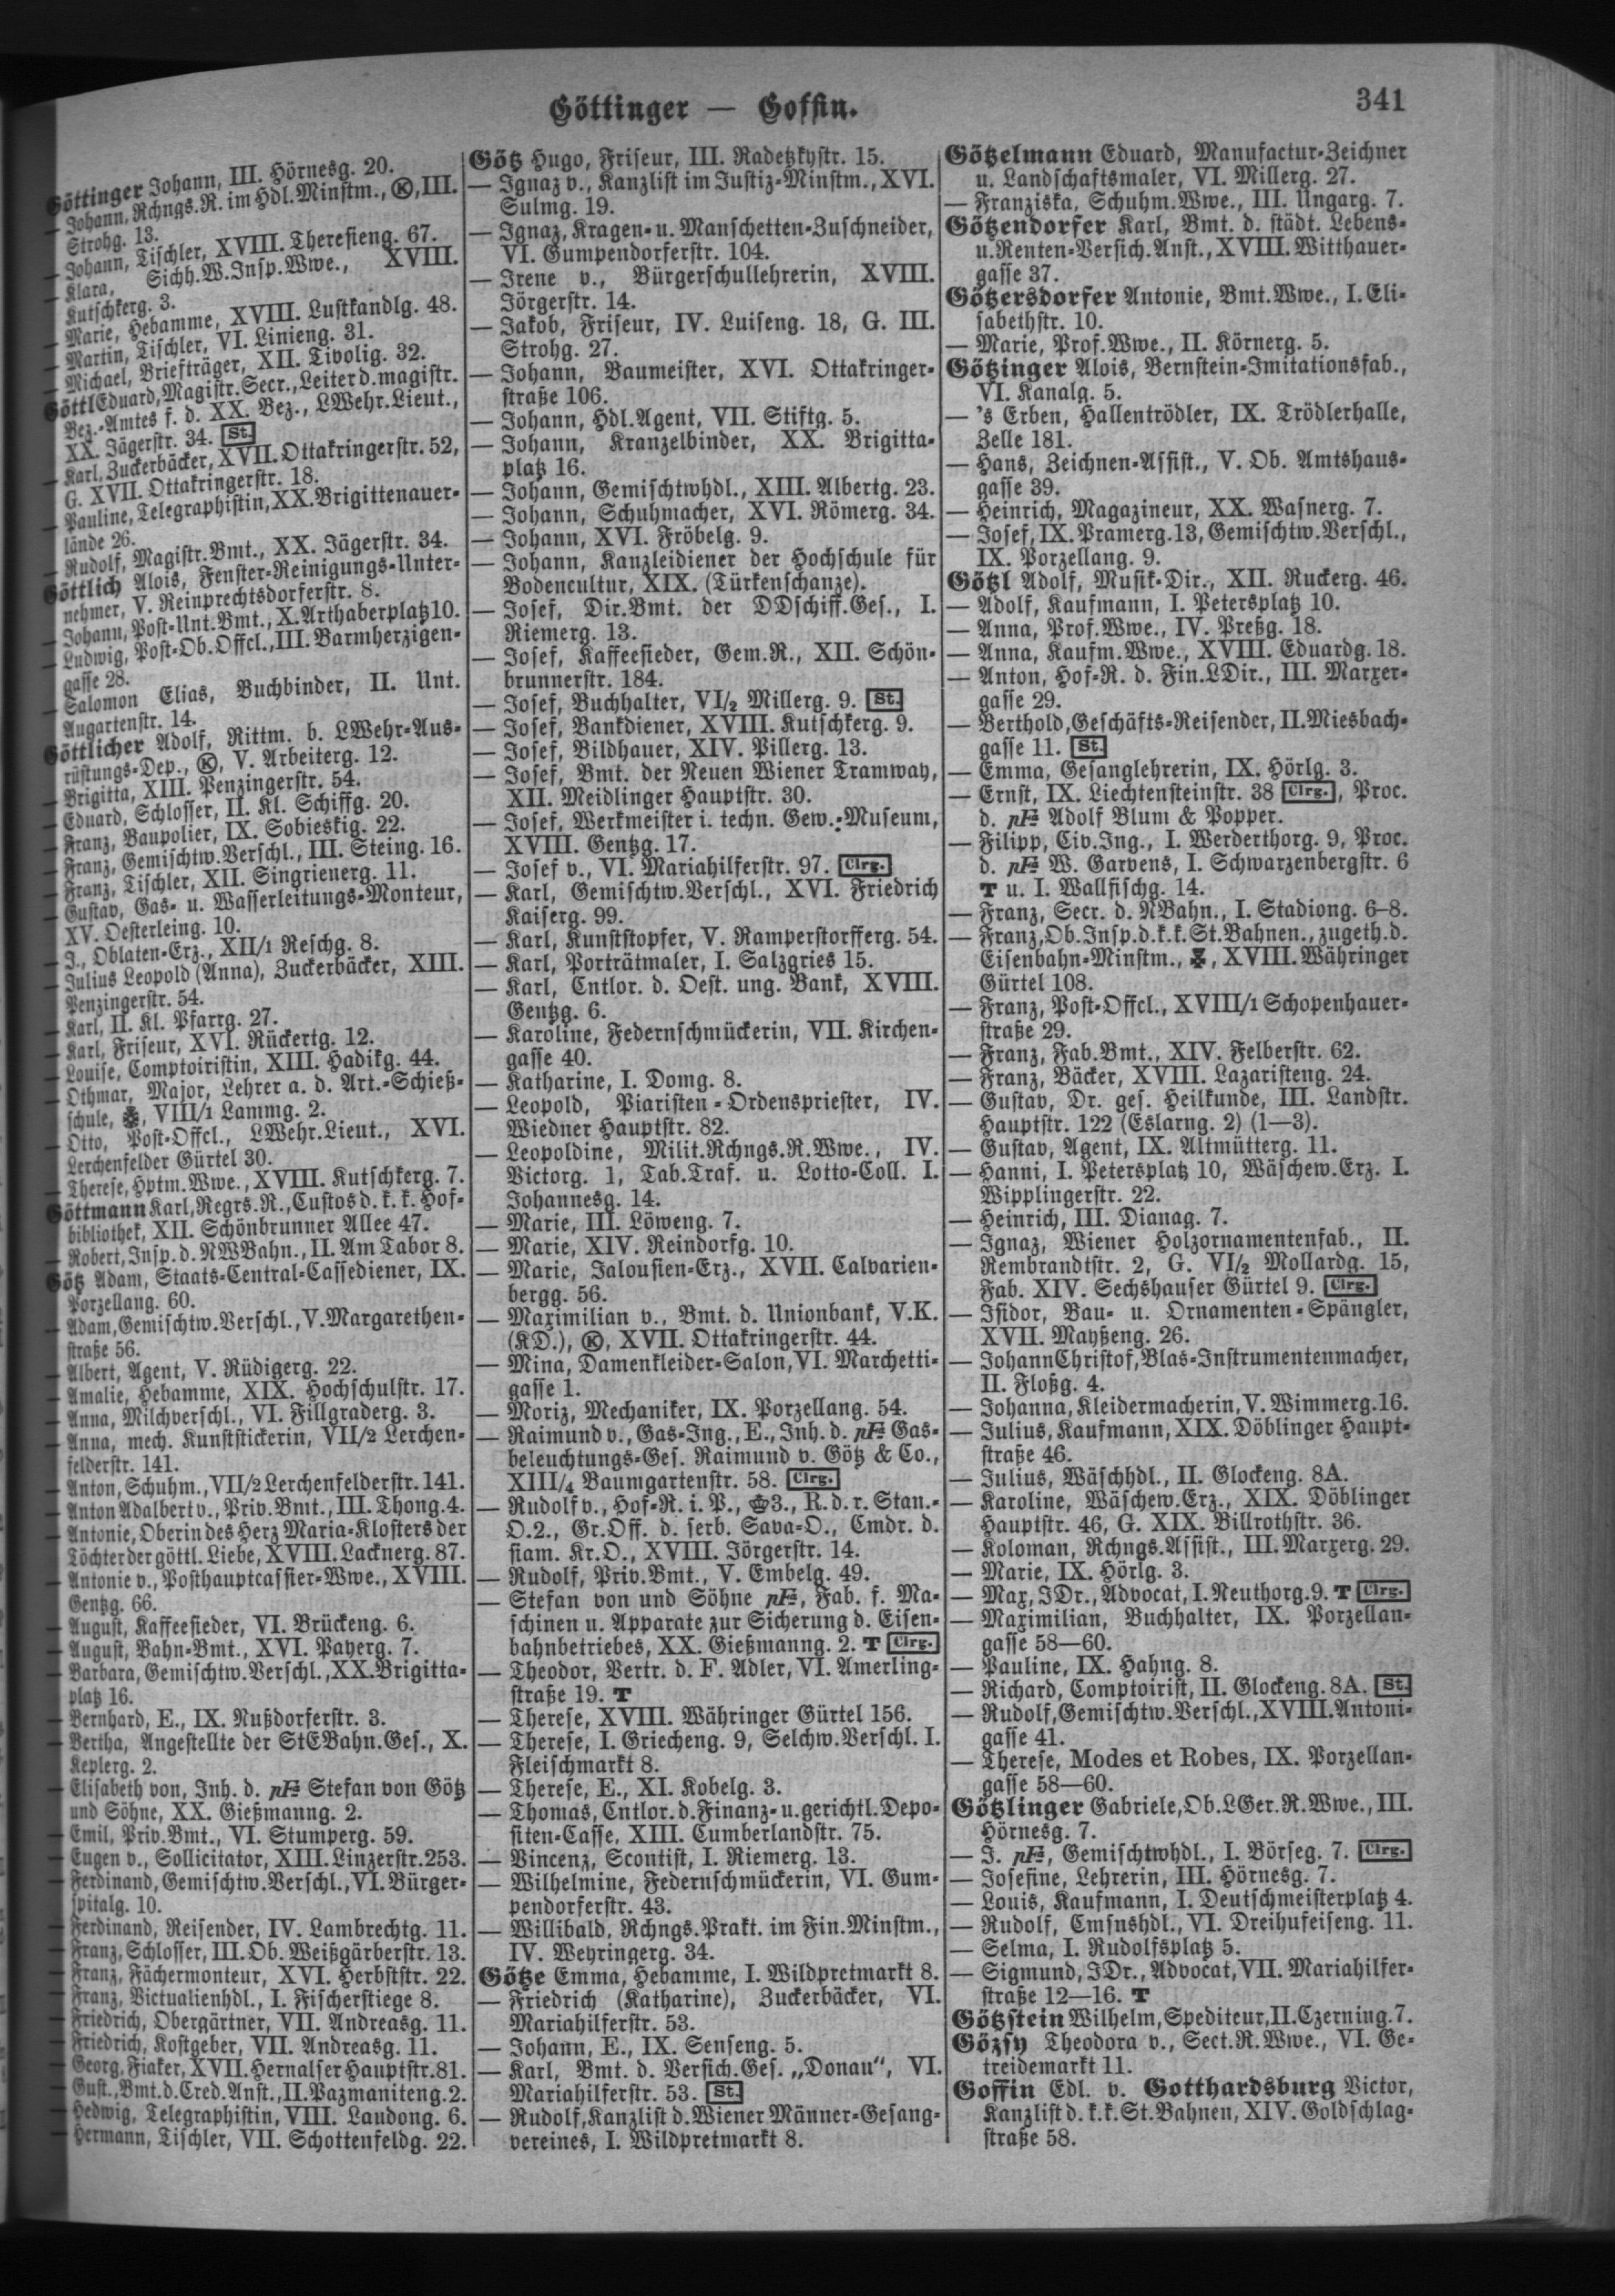 Göttinger — Goffin.
341
Göttinger Johann, III. Hörnesg. 20.
— Johann, Rchngs.R. im Hdl.Minstm., Ⓚ, III.
Strohg. 13.
— Johann, Tischler, XVIII. Theresieng. 67.
— Klara, Sichh.W.Insp.Wwe., XVIII.
Kutschkerg. 3.
— Marie, Hebamme, XVIII. Lustkandlg. 48.
— Martin, Tischler, VI. Linieng. 31.
— Michael, Briefträger, XII. Tivolig. 32.
Göttl Eduard, Magistr.Secr., Leiter d. magistr.
Bez.-Amtes f. d. XX. Bez., LWehr.Lieut.,
XX. Jägerstr. 34. St.
— Karl, Zuckerbäcker, XVII. Ottakringerstr. 52,
G. XVII. Ottakringerstr. 18.
— Pauline, Telegraphistin, XX. Brigittenauer-
lände 26.
— Rudolf, Magistr.Bmt., XX. Jägerstr. 34.
Göttlich Alois, Fenster-Reinigungs-Unter-
nehmer, V. Reinprechtsdorferstr. 8.
— Johann, Post-Unt.Bmt., X. Arthaberplatz 10.
— Ludwig, Post-Ob.Offcl., III. Barmherzigen-
gasse 28.
— Salomon Elias, Buchbinder, II. Unt.
Augartenstr. 14.
Göttlicher Adolf, Rittm. b. LWehr-Aus-
rüstungs-Dep., Ⓚ, V. Arbeiterg. 12.
— Brigitta, XIII. Penzingerstr. 54.
— Eduard, Schlosser, II. Kl. Schiffg. 20.
— Franz, Baupolier, IX. Sobieskig. 22.
— Franz, Gemischtw.Verschl., III. Steing. 16.
— Franz, Tischler, XII. Singrienerg. 11.
— Gustav, Gas- u. Wasserleitungs-Monteur,
XV. Oesterleing. 10.
— J., Oblaten-Erz., XII/1 Reschg. 8.
— Julius Leopold (Anna), Zuckerbäcker, XIII.
Penzingerstr. 54.
— Karl, II. Kl. Pfarrg. 27.
— Karl, Friseur, XVI. Rückertg. 12.
— Louise, Comptoiristin, XIII. Hadikg. 44.
— Othmar, Major, Lehrer a. d. Art.-Schieß-
schule, VIII/1 Lammg. 2.
— Otto, Post-Offcl., LWehr.Lieut., XVI.
Lerchenfelder Gürtel 30.
— Therese, Hptm.Wwe., XVIII. Kutschkerg. 7.
Göttmann Karl, Regrs.R., Custos d. k. k. Hof-
bibliothek, XII. Schönbrunner Allee 47.
— Robert, Insp. d. NWBahn., II. Am Tabor 8.
Götz Adam, Staats-Central-Cassediener, IX.
Porzellang. 60.
— Adam, Gemischtw.Verschl., V. Margarethen-
straße 56.
— Albert, Agent, V. Rüdigerg. 22.
— Amalie, Hebamme, XIX. Hochschulstr. 17.
— Anna, Milchverschl., VI. Fillgraderg. 3.
— Anna, mech. Kunststickerin, VII/2 Lerchen-
felderstr. 141.
— Anton, Schuhm., VII/2 Lerchenfelderstr. 141.
— Anton Adalbert v., Priv.Bmt., III. Thong. 4.
— Antonie, Oberin des Herz Maria-Klosters der
Töchter der göttl. Liebe, XVIII. Lacknerg. 87.
— Antonie v., Posthauptcassier-Wwe., XVIII.
Gentzg. 66.
— August, Kaffeesieder, VI. Brückeng. 6.
— August, Bahn-Bmt., XVI. Payerg. 7.
— Barbara, Gemischtw.Verschl., XX. Brigitta-
platz 16.
— Bernhard, E., IX. Nußdorferstr. 3.
— Bertha, Angestellte der StEBahn.Ges., X.
Keplerg. 2.
— Elisabeth von, Inh. d. pFa Stefan von Götz
und Söhne, XX. Gießmanng. 2.
— Emil, Priv.Bmt., VI. Stumperg. 59.
— Eugen v., Sollicitator, XIII. Linzerstr. 253.
— Ferdinand, Gemischtw.Verschl., VI. Bürger-
spitalg. 10.
— Ferdinand, Reisender, IV. Lambrechtg. 11.
— Franz, Schlosser, III. Ob. Weißgärberstr. 13.
— Franz, Fächermonteur, XVI. Herbststr. 22.
— Franz, Victualienhdl., I. Fischerstiege 8.
— Friedrich, Obergärtner, VII. Andreasg. 11.
— Friedrich, Kostgeber, VII. Andreasg. 11.
— Georg, Fiaker, XVII. Hernalser Hauptstr. 81.
— Gust., Bmt. d. Cred.Anst., II. Pazmaniteng. 2.
— Hedwig, Telegraphistin, VIII. Laudong. 6.
— Hermann, Tischler, VII. Schottenfeldg. 22.
Götz Hugo, Friseur, III. Radetzkystr. 15.
— Ignaz v., Kanzlist im Justiz-Minstm., XVI.
Sulmg. 19.
— Ignaz, Kragen- u. Manschetten-Zuschneider,
VI. Gumpendorferstr. 104.
— Irene v., Bürgerschullehrerin, XVIII.
Jörgerstr. 14.
— Jakob, Friseur, IV. Luiseng. 18, G. III.
Strohg. 27.
— Johann, Baumeister, XVI. Ottakringer-
straße 106.
— Johann, Hdl.Agent, VII. Stiftg. 5.
— Johann, Kranzelbinder, XX. Brigitta-
platz 16.
— Johann, Gemischtwhdl., XIII. Albertg. 23.
— Johann, Schuhmacher, XVI. Römerg. 34.
— Johann, XVI. Fröbelg. 9.
— Johann, Kanzleidiener der Hochschule für
Bodencultur, XIX. (Türkenschanze).
— Josef, Dir.Bmt. der DDschiff.Ges., I.
Riemerg. 13.
— Josef, Kaffeesieder, Gem.R., XII. Schön-
brunnerstr. 184.
— Josef, Buchhalter, VI/2 Millerg. 9. St.
— Josef, Bankdiener, XVIII. Kutschkerg. 9.
— Josef, Bildhauer, XIV. Pillerg. 13.
— Josef, Bmt. der Neuen Wiener Tramway,
XII. Meidlinger Hauptstr. 30.
— Josef, Werkmeister i. techn. Gew.-Museum,
XVIII. Gentzg. 17.
— Josef v., VI. Mariahilferstr. 97. Clrg.
— Karl, Gemischtw.Verschl., XVI. Friedrich
Kaiserg. 99.
— Karl, Kunststopfer, V. Ramperstorfferg. 54.
— Karl, Porträtmaler, I. Salzgries 15.
— Karl, Cntlor. d. Oest. ung. Bank, XVIII.
Gentzg. 6.
— Karoline, Federnschmückerin, VII. Kirchen-
gasse 40.
— Katharine, I. Domg. 8.
— Leopold, Piaristen-Ordenspriester, IV.
Wiedner Hauptstr. 82.
— Leopoldine, Milit.Rchngs.R.Wwe., IV.
Victorg. 1, Tab.Traf. u. Lotto-Coll. I.
Johannesg. 14.
— Marie, III. Löweng. 7.
— Marie, XIV. Reindorfg. 10.
— Marie, Jalousien-Erz., XVII. Calvarien-
bergg. 56.
— Maximilian v., Bmt. d. Unionbank, V.K.
(KD.), Ⓚ, XVII. Ottakringerstr. 44.
— Mina, Damenkleider-Salon, VI. Marchetti-
gasse 1.
— Moriz, Mechaniker, IX. Porzellang. 54.
— Raimund v., Gas-Ing., E., Inh. d. pFa Gas-
beleuchtungs-Ges. Raimund v. Götz & Co.,
XIII/4 Baumgartenstr. 58. Clrg.
— Rudolf v., Hof-R. i. P., 3., R. d. r. Stan.-
O.2., Gr.Off. d. serb. Sava-O., Cmdr. d.
siam. Kr.O., XVIII. Jörgerstr. 14.
— Rudolf, Priv.Bmt., V. Embelg. 49.
— Stefan von und Söhne pFa, Fab. f. Ma-
schinen u. Apparate zur Sicherung d. Eisen-
bahnbetriebes, XX. Gießmanng. 2. T Clrg.
— Theodor, Vertr. d. F. Adler, VI. Amerling-
straße 19. T
— Therese, XVIII. Währinger Gürtel 156.
— Therese, I. Griecheng. 9, Selchw.Verschl. I.
Fleischmarkt 8.
— Therese, E., XI. Kobelg. 3.
— Thomas, Cntlor. d. Finanz- u. gerichtl. Depo-
siten-Casse, XIII. Cumberlandstr. 75.
— Vincenz, Scontist, I. Riemerg. 13.
— Wilhelmine, Federnschmückerin, VI. Gum-
pendorferstr. 43.
— Willibald, Rchngs.Prakt. im Fin.Minstm.,
IV. Weyringerg. 34.
Götze Emma, Hebamme, I. Wildpretmarkt 8.
— Friedrich (Katharine), Zuckerbäcker, VI.
Mariahilferstr. 53.
— Johann, E., IX. Senseng. 5.
— Karl, Bmt. d. Versich.Ges. „Donau“, VI.
Mariahilferstr. 53. St.
— Rudolf, Kanzlist d. Wiener Männer-Gesang-
vereines, I. Wildpretmarkt 8.
Götzelmann Eduard, Manufactur-Zeichner
u. Landschaftsmaler, VI. Millerg. 27.
— Franziska, Schuhm.Wwe., III. Ungarg. 7.
Götzendorfer Karl, Bmt. d. städt. Lebens-
u. Renten-Versich.Anst., XVIII. Witthauer-
gasse 37.
Götzersdorfer Antonie, Bmt.Wwe., I. Eli-
sabethstr. 10.
— Marie, Prof.Wwe., II. Körnerg. 5.
Götzinger Alois, Bernstein-Imitationsfab.,
VI. Kanalg. 5.
— 's Erben, Hallentrödler, IX. Trödlerhalle,
Zelle 181.
— Hans, Zeichnen-Assist., V. Ob. Amtshaus-
gasse 39.
— Heinrich, Magazineur, XX. Wasnerg. 7.
— Josef, IX. Pramerg. 13, Gemischtw.Verschl.,
IX. Porzellang. 9.
Götzl Adolf, Musik-Dir., XII. Ruckerg. 46.
— Adolf, Kaufmann, I. Petersplatz 10.
— Anna, Prof.Wwe., IV. Preßg. 18.
— Anna, Kaufm.Wwe., XVIII. Eduardg. 18.
— Anton, Hof-R. d. Fin.LDir., III. Marxer-
gasse 29.
— Berthold, Geschäfts-Reisender, II. Miesbach-
gasse 11. St.
— Emma, Gesanglehrerin, IX. Hörlg. 3.
— Ernst, IX. Liechtensteinstr. 38 Clrg., Proc.
d. pFa Adolf Blum & Popper.
— Filipp, Civ.Ing., I. Werderthorg. 9, Proc.
d. pFa W. Garvens, I. Schwarzenbergstr. 6
T u. I. Wallfischg. 14.
— Franz, Secr. d. NBahn., I. Stadiong. 6–8.
— Franz, Ob.Insp. d. k. k. St.Bahnen., zugeth. d.
Eisenbahn-Minstm., XVIII. Währinger
Gürtel 108.
— Franz, Post-Offcl., XVIII/1 Schopenhauer-
straße 29.
— Franz, Fab.Bmt., XIV. Felberstr. 62.
— Franz, Bäcker, XVIII. Lazaristeng. 24.
— Gustav, Dr. ges. Heilkunde, III. Landstr.
Hauptstr. 122 (Eslarng. 2) (1—3).
— Gustav, Agent, IX. Altmütterg. 11.
— Hanni, I. Petersplatz 10, Wäschew.Erz. I.
Wipplingerstr. 22.
— Heinrich, III. Dianag. 7.
— Ignaz, Wiener Holzornamentenfab., II.
Rembrandtstr. 2, G. VI/2 Mollardg. 15,
Fab. XIV. Sechshauser Gürtel 9. Clrg.
— Isidor, Bau- u. Ornamenten-Spängler,
XVII. Mayßeng. 26.
— Johann Christof, Blas-Instrumentenmacher,
II. Floßg. 4.
— Johanna, Kleidermacherin, V. Wimmerg. 16.
— Julius, Kaufmann, XIX. Döblinger Haupt-
straße 46.
— Julius, Wäschhdl., II. Glockeng. 8A.
— Karoline, Wäschew.Erz., XIX. Döblinger
Hauptstr. 46, G. XIX. Billrothstr. 36.
— Koloman, Rchngs.Assist., III. Marxerg. 29.
— Marie, IX. Hörlg. 3.
— Max, JDr., Advocat, I. Neuthorg. 9. T Clrg.
— Maximilian, Buchhalter, IX. Porzellan-
gasse 58—60.
— Pauline, IX. Hahng. 8.
— Richard, Comptoirist, II. Glockeng. 8A. St.
— Rudolf, Gemischtw.Verschl., XVIII. Antoni-
gasse 41.
— Therese, Modes et Robes, IX. Porzellan-
gasse 58—60.
Götzlinger Gabriele, Ob.LGer.R.Wwe., III.
Hörnesg. 7.
— J. pFa, Gemischtwhdl., I. Börseg. 7. Clrg.
— Josefine, Lehrerin, III. Hörnesg. 7.
— Louis, Kaufmann, I. Deutschmeisterplatz 4.
— Rudolf, Cmsnshdl., VI. Dreihufeiseng. 11.
— Selma, I. Rudolfsplatz 5.
— Sigmund, JDr., Advocat, VII. Mariahilfer-
straße 12—16. T
Götzstein Wilhelm, Spediteur, II. Czerning. 7.
Gözsy Theodora v., Sect.R.Wwe., VI. Ge-
treidemarkt 11.
Goffin Edl. v. Gotthardsburg Victor,
Kanzlist d. k. k. St.Bahnen, XIV. Goldschlag-
straße 58.